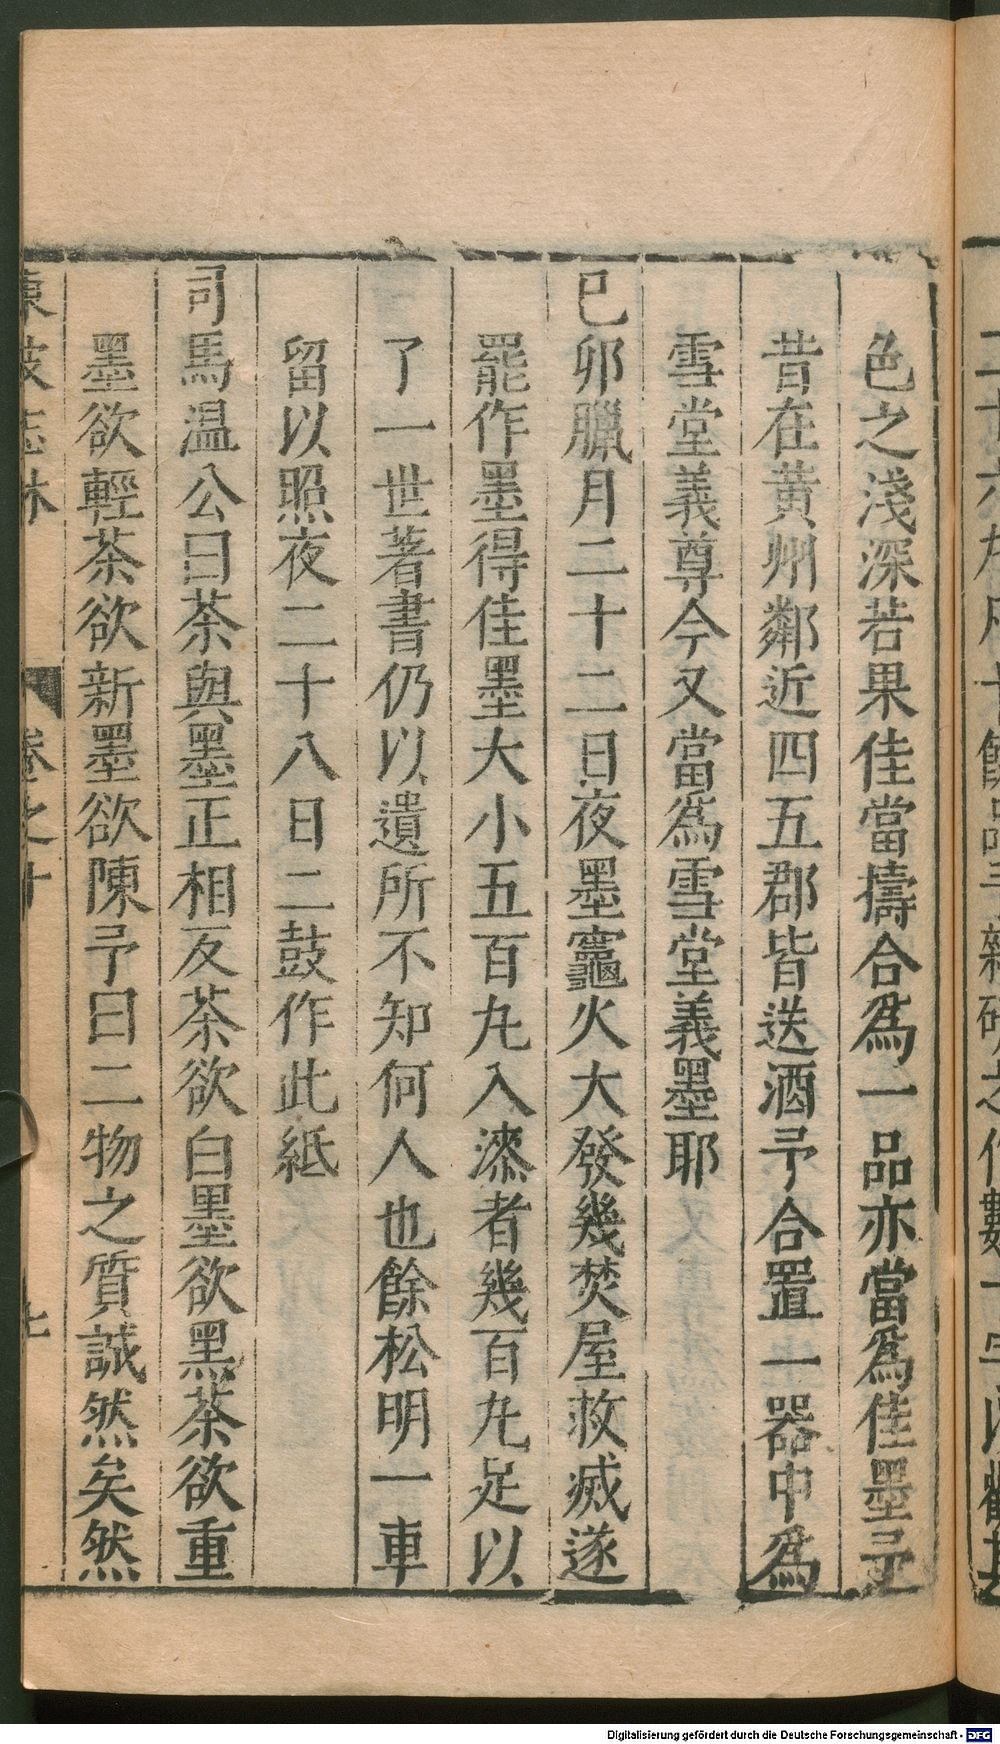 色之淺深若果佳當擣合爲一品亦當爲佳墨予
昔在黄州鄰近四五郡皆送酒予合置一器中爲
雪堂義尊今又當爲雪堂義墨耶
己卯臘月二十二日夜墨竈火大發幾焚屋救滅遂
罷作墨得佳墨大小五百丸入漆者幾百丸足以
了一世著書仍以遺所不知何人也餘松明一車
留以照夜二十八日二鼓作此紙
司馬温公曰茶與墨正相反茶欲白墨欲黑茶欲重
墨欲輕茶欲新墨欲陳予曰二物之質誠然矣然
東坡志林 卷之十 七
Digitalisierung gefördert durch die Deutsche Forschungsgemeinschaft - DFG